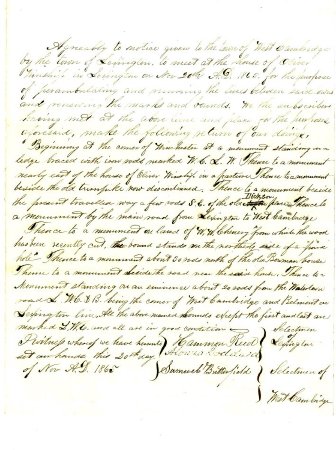 Agreeably to notice given to the town of West Cambridge
by the town of Lexington, to meet at the house of Oliver
Winship in Lexington on Nov 20th A.D. 1865 for the purpose
of perambulating and renewing the lines between said towns
and renewing the marks and bounds. We the subscribers
having met at the above time and place for the purpose
aforesaid, make the following return of our doings.
"Beginning at the corner of Winchester at a monument standing on a
ledge braced with iron rods marked W. C. L. W. Thence to a monument
nearly east of the house of Oliver Winship in a pasture. Thence to a monument
beside the old turnpike now discontinued. Thence to a monument beside
the present travelled way a few rods S.E. of the old house Thence to
a monument by the main road from Lexington to West Cambridge
Thence to a monument on land of W. H. from which the wood
has been recently cut, the bound stands on the northerly side of a "pond
hole" Thence to a monument about 60 rods north of the old house
Thence to a monument beside the road near the same house. Thence to a
Monument standing on an eminence about 20 rods from the Waltham
road L. W.C & B. being the corner of West Cambridge and Belmont on
Lexington line. All the above named bounds except the first and last are
marked L W.C. and all are in good condition
Witness whereof we have hereunto
set our hands this 20th day
of Nov A.D. 1865
Hammon Reed
Samuel Butterfield
Selectmen
of
Lexington
Selectmen of
West Cambridge